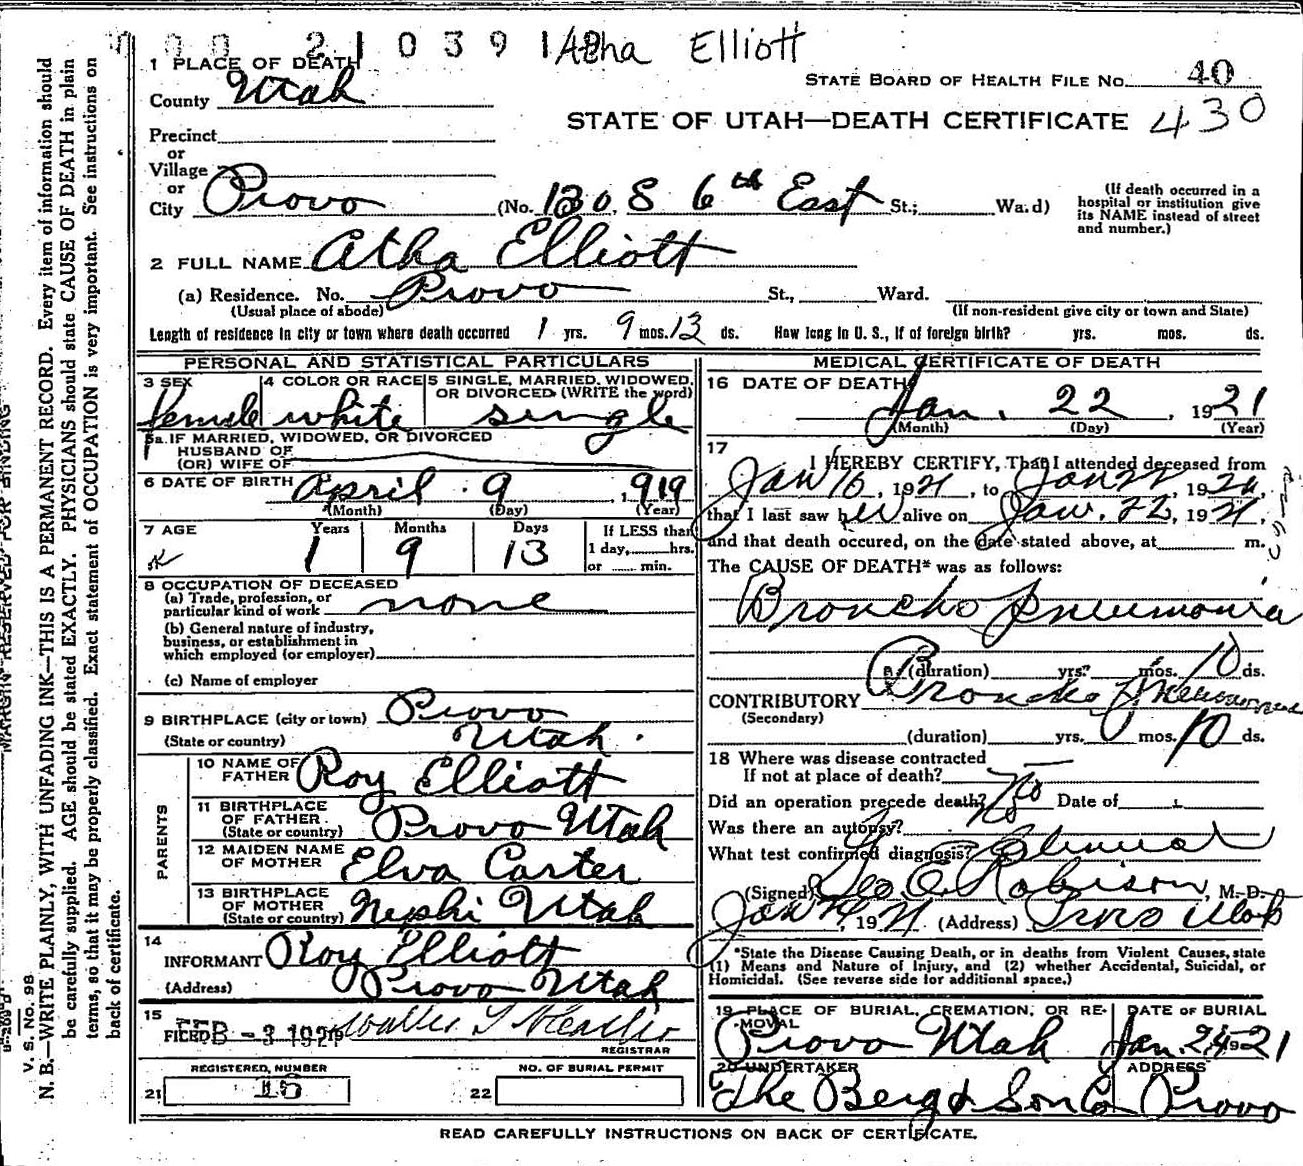 2 1 0 3 9 1 Atha Elliott
1 PLACE OF DEATH
STATE BOARD OF HEALTH FILE No. 40
County Utah
STATE OF UTAH—DEATH CERTIFICATE 430
Precinct
or
Village
or
City Provo (No. 1280 S 6th East St.; Ward)
(If death occurred in a
hospital or institution give
its NAME instead of street
and number.)
2 FULL NAME Atha Elliott
(a) Residence. No. Provo St., Ward.
(Usual place of abode) (If non-resident give city or town and State)
Length of residence in city or town where death occurred 1 yrs. 9 mos. 13 ds. How long in U. S., if of foreign birth? yrs. mos. ds.
PERSONAL AND STATISTICAL PARTICULARS
3 SEX 4 COLOR OR RACE 5 SINGLE, MARRIED, WIDOWED,
OR DIVORCED (WRITE the word)
female white single
5a. IF MARRIED, WIDOWED, OR DIVORCED
HUSBAND OF
(OR) WIFE OF
6 DATE OF BIRTH April 9, 1919
(Month) (Day) (Year)
7 AGE Years Months Days If LESS than
1 9 13 1 day, hrs.
or min.
8 OCCUPATION OF DECEASED
(a) Trade, profession, or
particular kind of work none
(b) General nature of industry,
business, or establishment in
which employed (or employer)
(c) Name of employer
9 BIRTHPLACE (city or town) Provo
(State or country) Utah.
PARENTS
10 NAME OF
FATHER Roy Elliott
11 BIRTHPLACE
OF FATHER.
(State or country) Provo Utah
12 MAIDEN NAME
OF MOTHER Elva Carter
13 BIRTHPLACE OF
MOTHER
(State or country) Nephi Utah
14
INFORMANT Roy Elliott
(Address) Provo Utah
15
FILED FEB -3 1921
REGISTRAR
REGISTERED, NUMBER NO. OF BURIAL PERMIT
21 15 22
MEDICAL CERTIFICATE OF DEATH
16 DATE OF DEATH
Jan. 22, 1921
(Month) (Day) (Year)
17
I HEREBY CERTIFY, That I attended deceased from
Jan 16, 1921, to Jan 22, 192
that I last saw her alive on Jan. 22, 1921,
and that death occured, on the date stated above, at m.
The CAUSE OF DEATH* was as follows:
Broncho pneumonia
(duration) yrs. mos. 10 ds.
CONTRIBUTORY Broncho Pneumonia
(Secondary)
(duration) yrs. mos. 10 ds.
18 Where was disease contracted
If not at place of death?
Did an operation precede death? No Date of
Was there an autopsy? No
What test confirmed diagnosis? Clinical
(Signed) Geo. E. Robison, M. D.
Jan 24, 1921 (Address) Provo Utah
*State the Disease Causing Death, or in deaths from Violent Causes, state
(1) Means and Nature of Injury, and (2) whether Accidental, Suicidal, or
Homicidal. (See reverse side for additional space.)
19 PLACE OF BURIAL, CREMATION, OR RE-
MOVAL DATE OF BURIAL
Provo Utah Jan. 24 1921
20 UNDERTAKER ADDRESS
The Berg & Son Co Provo
READ CAREFULLY INSTRUCTIONS ON BACK OF CERTIFICATE.
MARGIN RESERVED FOR BINDING
V. S. No. 98
N. B.—WRITE PLAINLY, WITH UNFADING INK—THIS IS A PERMANENT RECORD. Every item of information should
be carefully supplied. AGE should be stated EXACTLY. PHYSICIANS should state CAUSE OF DEATH in plain
terms, so that it may be properly classified. Exact statement of OCCUPATION is very important. See instructions on
back of certificate.